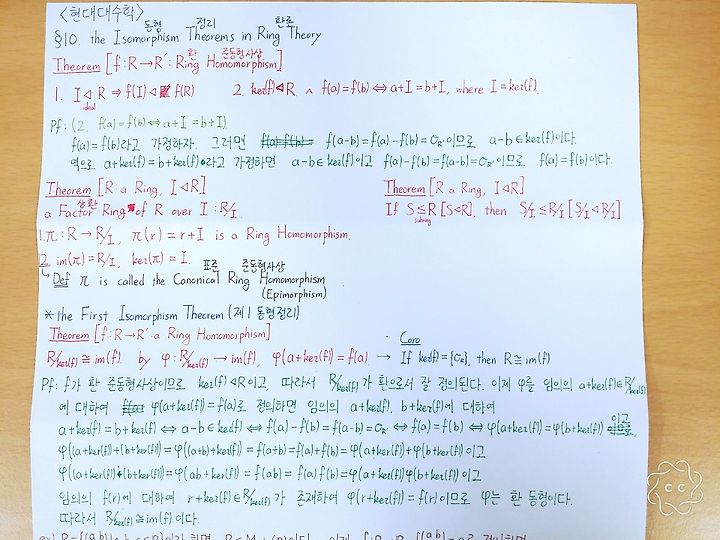 <현대대수학>
동형 정리 환론
§10. the Isomorphism Theorems in Ring Theory
환 준동형사상
Theorem [f:R→R′: Ring Homomorphism]
1. I◁R ⇒ f(I)◁f(R) 2. ker(f)◁R. ∧ f(a)=f(b)⇔a+I=b+I, where I=ker(f).
ideal
Pf: (2. f(a)=f(b)⇔a+I=b+I)
f(a)=f(b)라고 가정하자. 그러면 f(a-b)=f(a)-f(b)=0R′이므로 a-b∈ker(f)이다.
역으로 a+ker(f)=b+ker(f)라고 가정하면 a-b∈ker(f)이고 f(a)-f(b)=f(a-b)=0R′이므로 f(a)=f(b)이다.
Theorem [R: a Ring, I◁R]
상환
a Factor Ring of R over I: R/I.
1. π: R→R/I, π(r)=r+I is a Ring Homomorphism.
2. im(π)=R/I, ker(π)=I.
표준 준동형사상
Def π is called the Canonical Ring Homomorphism
(Epimorphism)
Theorem [R: a Ring, I◁R]
If S≤R [S◁R], then S/I≤R/I [S/I◁R/I]
subring
*the First Isomorphism Theorem (제1 동형정리)
Theorem [f:R→R′: a Ring Homomorphism]
R/ker(f)≅im(f) by φ: R/ker(f)→im(f), φ(a+ker(f))=f(a)
Coro
→ If ker(f)={0R}, then R≅im(f)
Pf: f가 환 준동형사상이므로 ker(f)◁R이고, 따라서 R/ker(f)가 환으로서 잘 정의된다. 이제 φ를 임의의 a+ker(f)∈R/ker(f)
에 대하여 φ(a+ker(f))=f(a)로 정의하면 임의의 a+ker(f), b+ker(f)에 대하여
a+ker(f)=b+ker(f)⇔a-b∈ker(f)⇔f(a)-f(b)=f(a-b)=0R′⇔f(a)=f(b)⇔φ(a+ker(f))=φ(b+ker(f))이고
φ((a+ker(f))+(b+ker(f)))=φ((a+b)+ker(f))=f(a+b)=f(a)+f(b)=φ(a+ker(f))+φ(b+ker(f))이고
φ((a+ker(f))·(b+ker(f)))=φ(ab+ker(f))=f(ab)=f(a)f(b)=φ(a+ker(f))φ(b+ker(f))이고
임의의 f(r)에 대하여 r+ker(f)∈R/ker(f)가 존재하여 φ(r+ker(f))=f(r)이므로 φ는 환 동형이다.
따라서 R/ker(f)≅im(f)이다.
CC